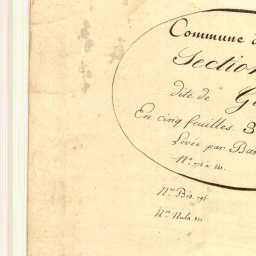 Commune d
Section
dite de G
En cinq feuilles. 3
Levée par Ba
N.º
N.º Bis
N.º Nula